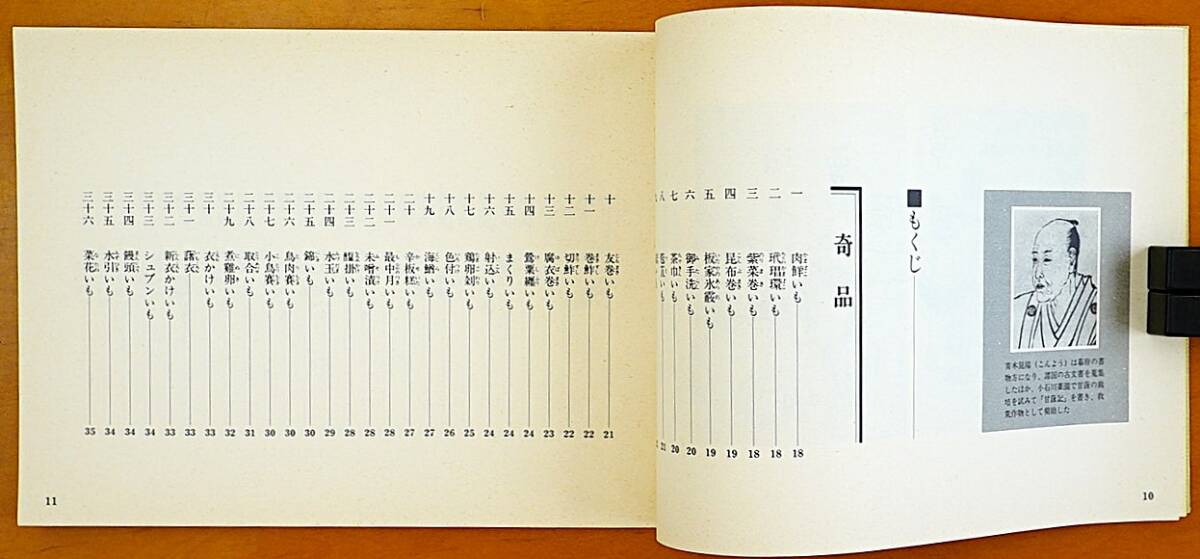 青木昆陽（こんよう）は幕府の書
物方になり、諸国の古文書を蒐集
したほか、小石川薬園で甘藷の栽
培を試みて「甘藷記」を書き、救
荒作物として奨励した
■もくじ
奇品
一 肉鮮いも 18
二 玳瑁環いも 18
三 紫菜巻いも 18
四 昆布巻いも 19
五 板家氷霰いも 19
六 御手洗いも 20
七 茶巾いも 20
八 21
10
十 友巻いも 21
十一 巻鮓いも 22
十二 切鮓いも 22
十三 腐衣巻いも 23
十四 鶯葉纏いも 24
十五 まくりいも 24
十六 射込いも 24
十七 鶏卵剝いも 25
十八 色付いも 26
十九 海鰌いも 27
二十 辛板糕いも 27
二十一 最中月いも 28
二十二 未噌漬いも 28
二十三 掛いも 28
二十四 氷玉いも 29
二十五 錦いも 30
二十六 鳥肉賽いも 30
二十七 小鳥賽いも 30
二十八 取合いも 31
二十九 煮雞卵いも 32
三十 衣かけいも 33
三十一 藷衣 33
三十二 新衣かけいも 33
三十三 シュブンいも 34
三十四 饅頭いも 34
三十五 水引いも 34
三十六 菜花いも 35
11